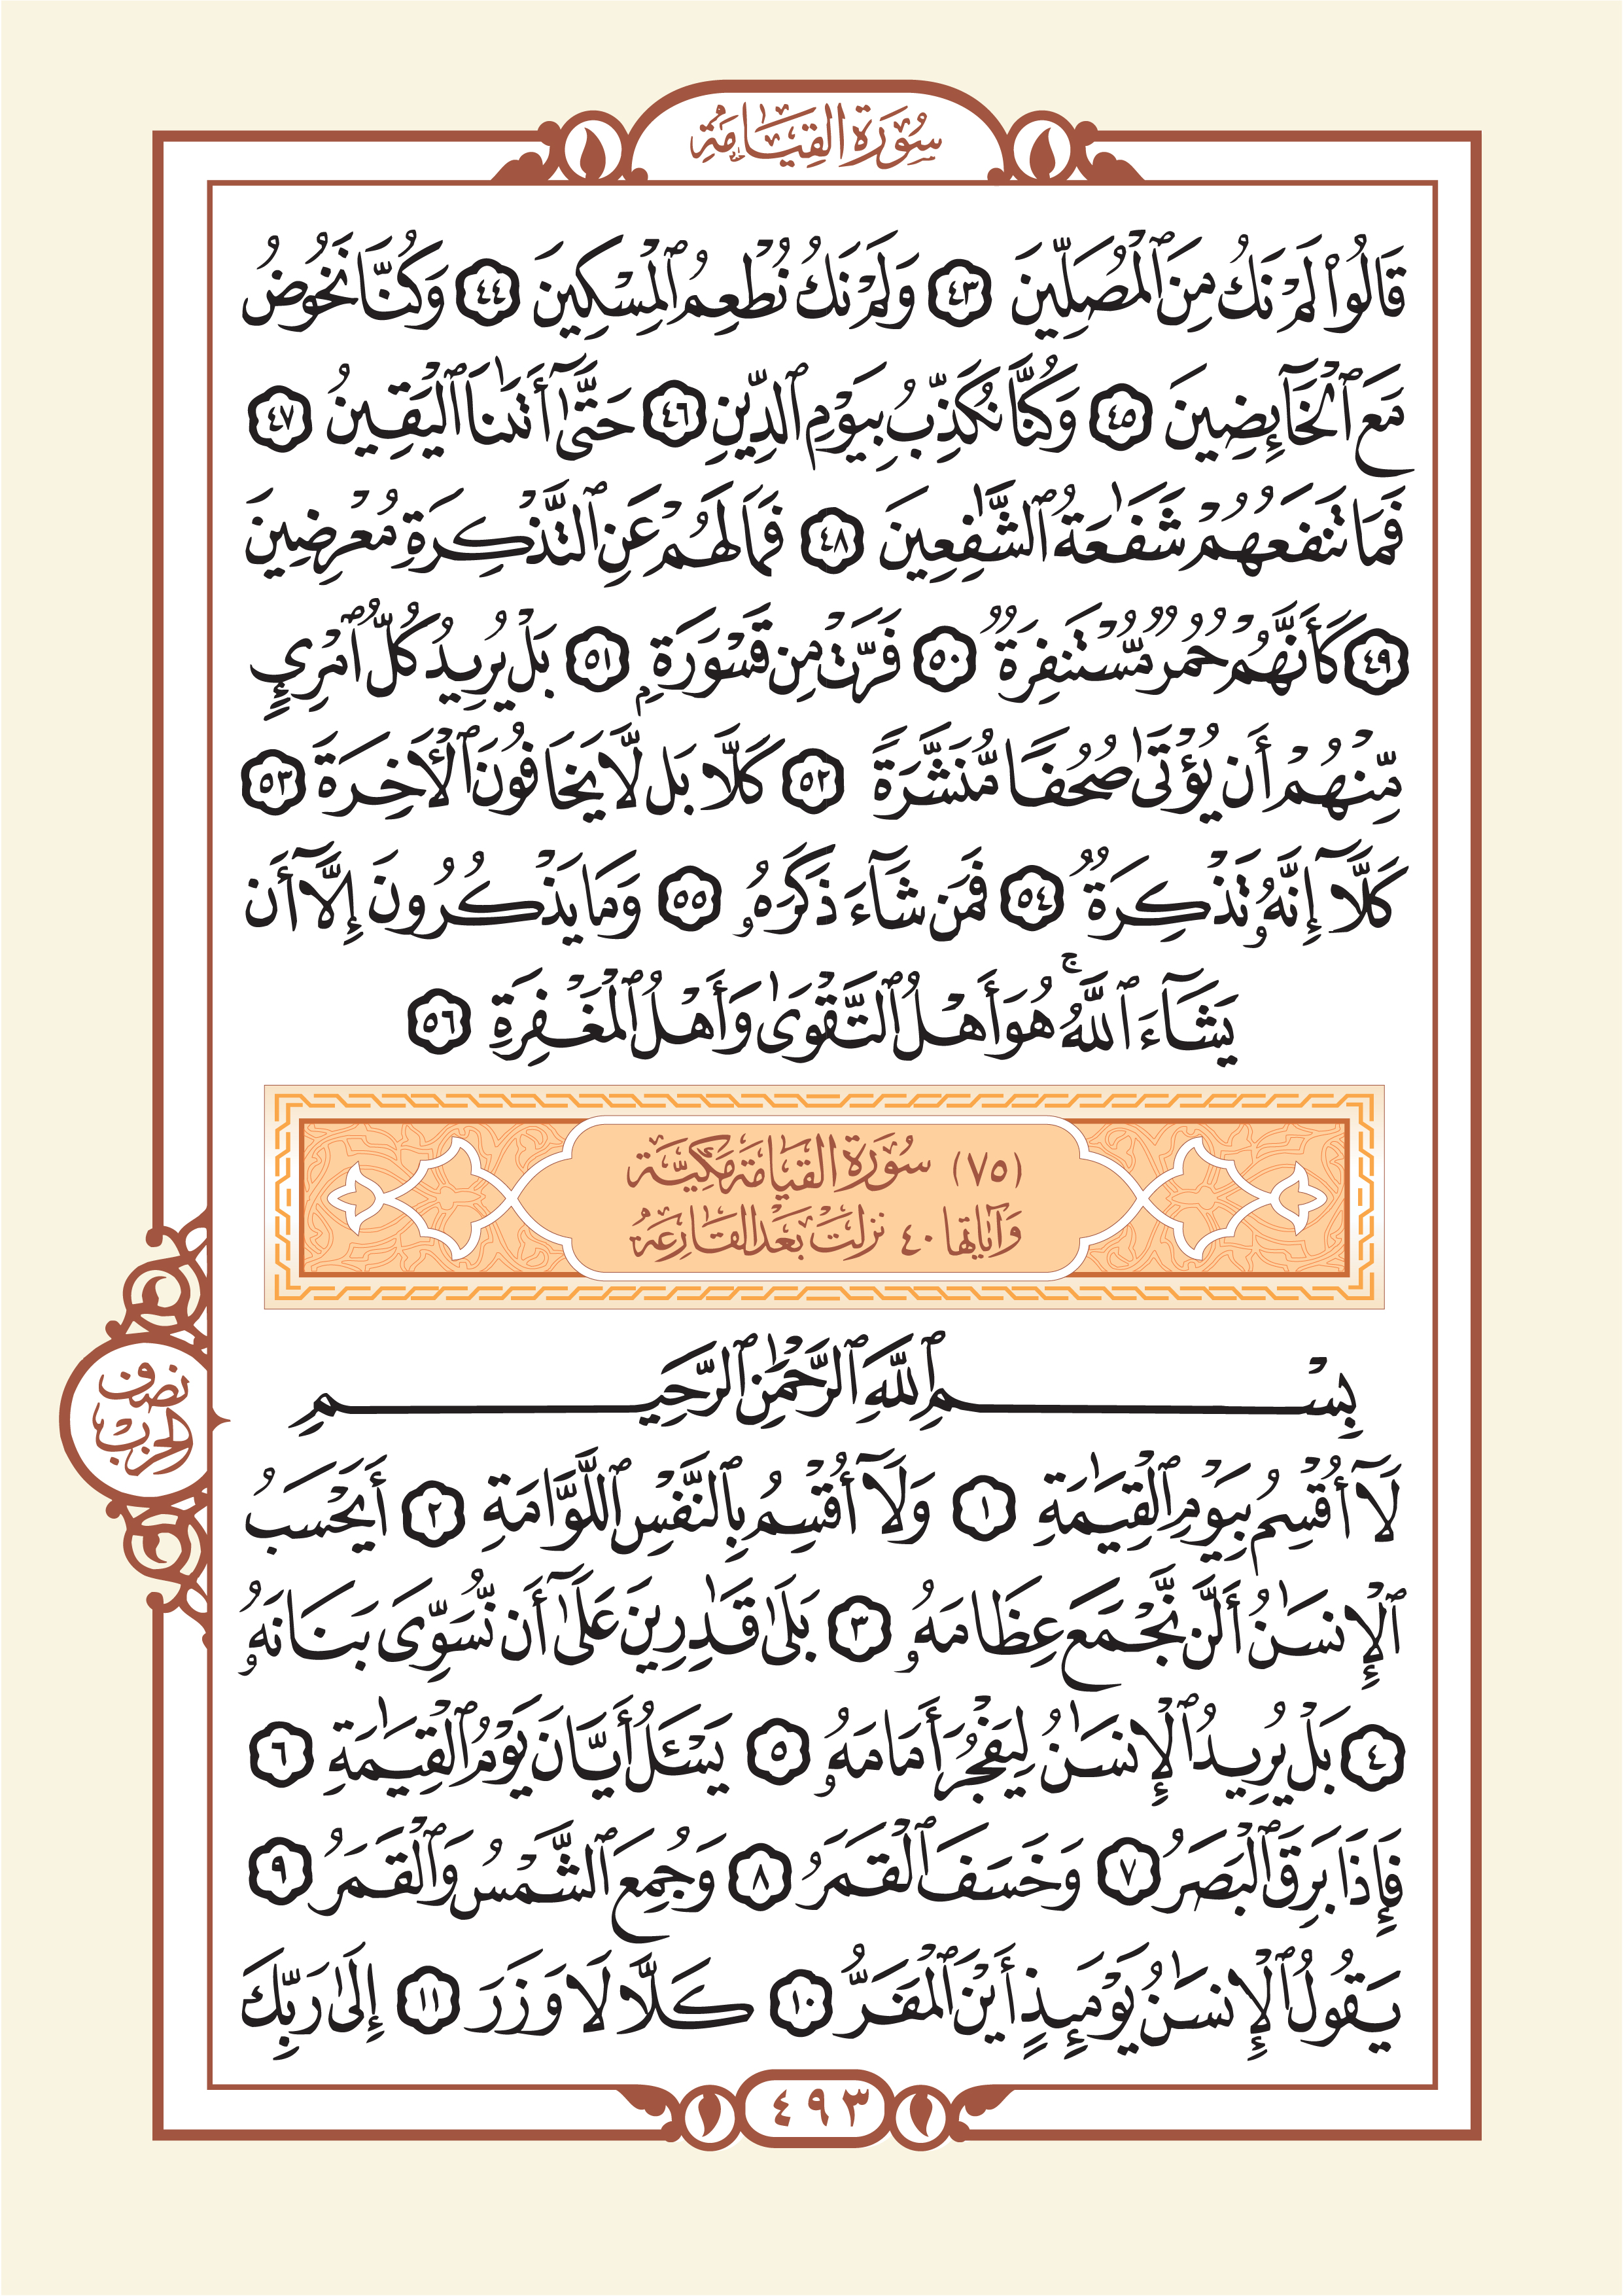 سُورَةُ القِيَامَةِ
قَالُواْ لَمْ نَكُ مِنَ ٱلْمُصَلِّينَ ٤٣ وَلَمْ نَكُ نُطْعِمُ ٱلْمِسْكِينَ ٤٤ وَكُنَّا نَخُوضُ
مَعَ ٱلْخَآئِضِينَ ٤٥ وَكُنَّا نُكَذِّبُ بِيَوْمِ ٱلدِّينِ ٤٦ حَتَّىٰٓ أَتَىٰنَا ٱلْيَقِينُ ٤٧
فَمَا تَنفَعُهُمْ شَفَٰعَةُ ٱلشَّٰفِعِينَ ٤٨ فَمَا لَهُمْ عَنِ ٱلتَّذْكِرَةِ مُعْرِضِينَ
٤٩ كَأَنَّهُمْ حُمُرٌ مُّسْتَنفِرَةٌ ٥٠ فَرَّتْ مِن قَسْوَرَةٍۭ ٥١ بَلْ يُرِيدُ كُلُّ ٱمْرِئٍ
مِّنْهُمْ أَن يُؤْتَىٰ صُحُفًا مُّنَشَّرَةً ٥٢ كَلَّا بَل لَّا يَخَافُونَ ٱلْأٓخِرَةَ ٥٣
كَلَّآ إِنَّهُۥ تَذْكِرَةٌ ٥٤ فَمَن شَآءَ ذَكَرَهُۥ ٥٥ وَمَا يَذْكُرُونَ إِلَّآ أَن
يَشَآءَ ٱللَّهُۚ هُوَ أَهْلُ ٱلتَّقْوَىٰ وَأَهْلُ ٱلْمَغْفِرَةِ ٥٦
(٧٥) سُورَةُ القِيَامَةِ مَكِّيَّة
وَآيَاتُهَا ٤٠ نَزَلَتْ بَعْدَ القَارِعَةِ
بِسْمِ ٱللَّهِ ٱلرَّحْمَٰنِ ٱلرَّحِيمِ
نصف
الحزب
لَآ أُقْسِمُ بِيَوْمِ ٱلْقِيَٰمَةِ ١ وَلَآ أُقْسِمُ بِٱلنَّفْسِ ٱللَّوَّامَةِ ٢ أَيَحْسَبُ
ٱلْإِنسَٰنُ أَلَّن نَّجْمَعَ عِظَامَهُۥ ٣ بَلَىٰ قَٰدِرِينَ عَلَىٰٓ أَن نُّسَوِّىَ بَنَانَهُۥ
٤ بَلْ يُرِيدُ ٱلْإِنسَٰنُ لِيَفْجُرَ أَمَامَهُۥ ٥ يَسْـَٔلُ أَيَّانَ يَوْمُ ٱلْقِيَٰمَةِ ٦
فَإِذَا بَرِقَ ٱلْبَصَرُ ٧ وَخَسَفَ ٱلْقَمَرُ ٨ وَجُمِعَ ٱلشَّمْسُ وَٱلْقَمَرُ ٩
يَقُولُ ٱلْإِنسَٰنُ يَوْمَئِذٍ أَيْنَ ٱلْمَفَرُّ ١٠ كَلَّا لَا وَزَرَ ١١ إِلَىٰ رَبِّكَ
٤٩٣